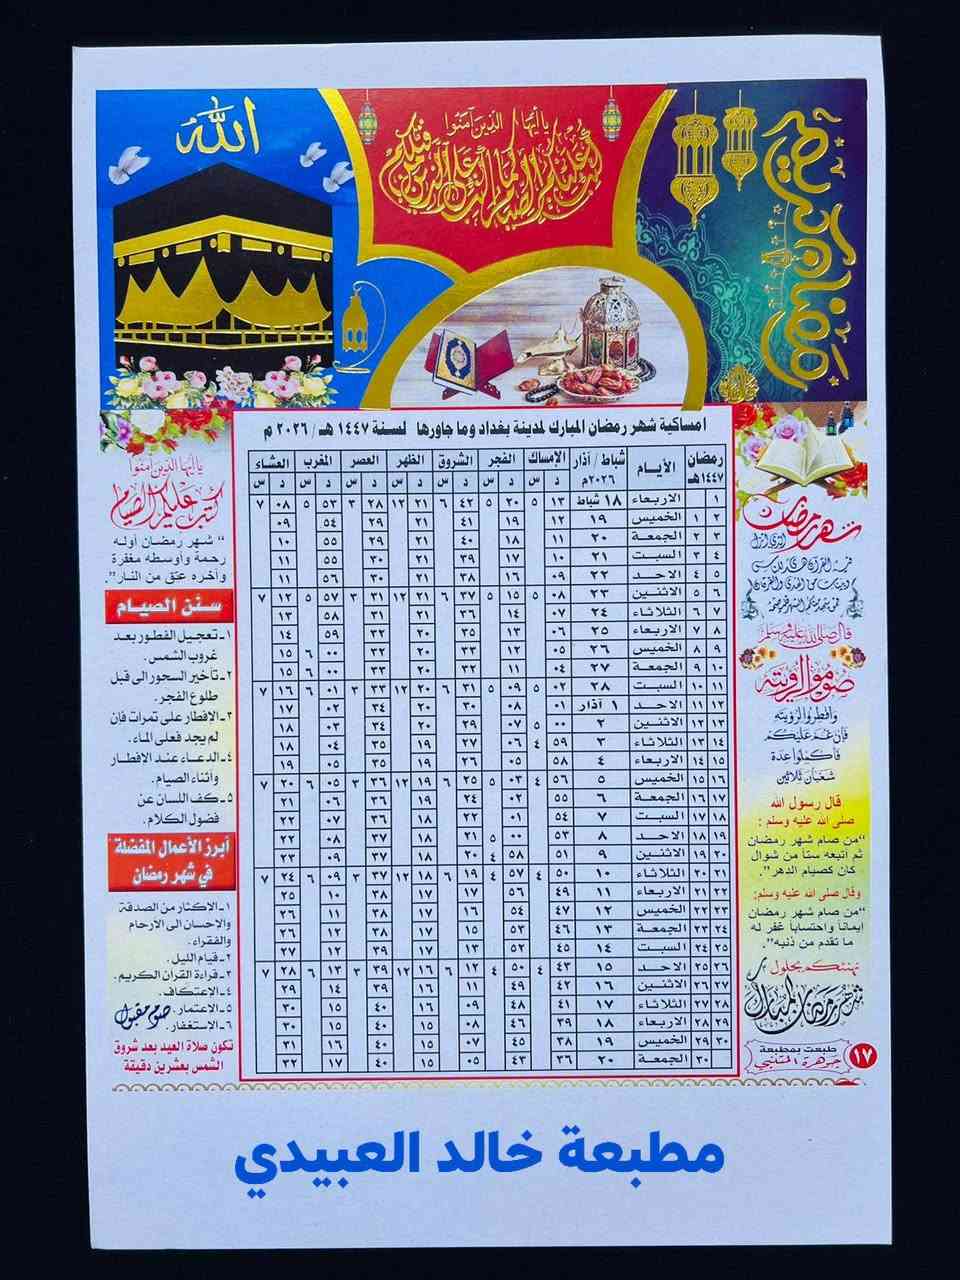 الله
يا أيها الذين آمنوا
كتب عليكم الصيام كما كتب على الذين من قبلكم
شهر رمضان
امساكية شهر رمضان المبارك لمدينة بغداد وما جاورها لسنة ١٤٤٧ هـ / ٢٠٢٦ م
رمضان ١٤٤٧هـ الأيـام شباط / آذار ٢٠٢٦م الإمساك الفجر الشروق الظهر العصر المغرب العشاء
د س د س د س د س د س د س د س
١ الاربعاء ١٨ شباط ١٣ ٥ ٢٠ ٥ ٤٢ ٦ ٢١ ١٢ ٢٨ ٣ ٥٣ ٥ ٠٨ ٧
٢ ١ الخميس ١٩ ١٢ ١٩ ٤١ ٢١ ٢٩ ٥٤ ٠٩
٣ ٢ الجمعة ٢٠ ١١ ١٨ ٤٠ ٢١ ٢٩ ٥٥ ١٠
٤ ٣ السبت ٢١ ١٠ ١٧ ٣٩ ٢١ ٣٠ ٥٥ ١١
٥ ٤ الاحد ٢٢ ٠٩ ١٦ ٣٨ ٢١ ٣٠ ٥٦ ١١
٦ ٥ الاثنين ٢٣ ٠٨ ٥ ١٥ ٥ ٣٧ ٦ ٢١ ١٢ ٣١ ٣ ٥٧ ٥ ١٢ ٧
٧ ٦ الثلاثاء ٢٤ ٠٧ ١٤ ٣٦ ٢١ ٣١ ٥٨ ١٣
٨ ٧ الاربعاء ٢٥ ٠٦ ١٣ ٣٥ ٢٠ ٣٢ ٥٩ ١٤
٩ ٨ الخميس ٢٦ ٠٥ ١٢ ٣٣ ٢٠ ٣٢ ٠٠ ٦ ١٥
١٠ ٩ الجمعة ٢٧ ٠٤ ١١ ٣٢ ٢٠ ٣٣ ٠٠ ٦ ١٥
١١ ١٠ السبت ٢٨ ٠٢ ٥ ٠٩ ٥ ٣١ ٦ ٢٠ ١٢ ٣٣ ٣ ٠١ ٦ ١٦ ٧
١٢ ١١ الاحد ١ آذار ٠١ ٠٨ ٣٠ ٢٠ ٣٤ ٠٢ ١٧
١٣ ١٢ الاثنين ٢ ٠٠ ٥ ٠٧ ٢٩ ٢٠ ٣٤ ٠٣ ١٨
١٤ ١٣ الثلاثاء ٣ ٥٩ ٤ ٠٦ ٢٧ ١٩ ٣٥ ٠٤ ١٨
١٥ ١٤ الاربعاء ٤ ٥٨ ٠٥ ٢٦ ١٩ ٣٥ ٠٥ ١٩
١٦ ١٥ الخميس ٥ ٥٦ ٤ ٠٣ ٥ ٢٥ ٦ ١٩ ١٢ ٣٦ ٣ ٠٥ ٦ ٢٠ ٧
١٧ ١٦ الجمعة ٦ ٥٥ ٠٢ ٢٤ ١٩ ٣٦ ٠٦ ٢١
١٨ ١٧ السبت ٧ ٥٤ ٠١ ٢٢ ١٩ ٣٧ ٠٧ ٢٢
١٩ ١٨ الاحد ٨ ٥٣ ٠٠ ٥ ٢١ ١٨ ٣٧ ٠٨ ٢٢
٢٠ ١٩ الاثنين ٩ ٥١ ٥٨ ٤ ٢٠ ١٨ ٣٧ ٠٩ ٢٣
٢١ ٢٠ الثلاثاء ١٠ ٥٠ ٤ ٥٧ ٤ ١٩ ٦ ١٨ ١٢ ٣٧ ٣ ٠٩ ٦ ٢٤ ٧
٢٢ ٢١ الاربعاء ١١ ٤٩ ٥٦ ١٧ ١٧ ٣٨ ١٠ ٢٥
٢٣ ٢٢ الخميس ١٢ ٤٧ ٥٤ ١٦ ١٧ ٣٨ ١١ ٢٦
٢٤ ٢٣ الجمعة ١٣ ٤٦ ٥٣ ١٥ ١٧ ٣٨ ١٢ ٢٦
٢٥ ٢٤ السبت ١٤ ٤٥ ٥٢ ١٣ ١٧ ٣٩ ١٢ ٢٧
٢٦ ٢٥ الاحد ١٥ ٤٣ ٤ ٥٠ ٤ ١٢ ٦ ١٦ ١٢ ٣٩ ٣ ١٣ ٦ ٢٨ ٧
٢٧ ٢٦ الاثنين ١٦ ٤٢ ٤٩ ١١ ١٦ ٣٩ ١٤ ٢٩
٢٨ ٢٧ الثلاثاء ١٧ ٤١ ٤٨ ٠٩ ١٦ ٤٠ ١٥ ٣٠
٢٩ ٢٨ الاربعاء ١٨ ٣٩ ٤٦ ٠٨ ١٥ ٤٠ ١٥ ٣٠
٣٠ ٢٩ الخميس ١٩ ٣٨ ٤٥ ٠٧ ١٥ ٤٠ ١٦ ٣١
٣٠ الجمعة ٢٠ ٣٦ ٤٣ ٠٥ ١٥ ٤٠ ١٧ ٣٢
شهر رمضان
الذي أنزل
فيه القرآن هدى للناس
وبينات من الهدى والفرقان
فمن شهد منكم الشهر فليصمه
قال صلى الله عليه وسلم
صوموا لرؤيته
وأفطروا لرؤيته
فإن غم عليكم
فأكملوا عدة
شعبان ثلاثين
قال رسول الله
صلى الله عليه وسلم :
"من صام شهر رمضان
ثم اتبعه ستا من شوال
كان كصيام الدهر"
وقال صلى الله عليه وسلم:
"من صام شهر رمضان
ايمانا واحتسابا غفر له
ما تقدم من ذنبه".
نهنئكم بحلول
شهر رمضان المبارك
طبعت بمطبعة
جوهرة المتنبي
١٧
يا أيها الذين آمنوا
كتب عليكم الصيام
" شهر رمضان أوله
رحمة وأوسطه مغفرة
وآخره عتق من النار".
سنن الصيام
١- تعجيل الفطور بعد
غروب الشمس.
٢- تأخير السحور الى قبل
طلوع الفجر.
٣- الإفطار على تمرات فإن
لم يجد فعلى الماء.
٤- الدعاء عند الافطار
وأثناء الصيام.
٥- كف اللسان عن
فضول الكلام.
أبرز الأعمال المفضلة
في شهر رمضان
١- الاكثار من الصدقة
والاحسان الى الارحام
والفقراء.
٢- قيام الليل.
٣- قراءة القران الكريم.
٤- الإعتكاف.
٥- الاعتمار.
٦- الإستغفار.
صوم مقبول
تكون صلاة العيد بعد شروق
الشمس بعشرين دقيقة
مطبعة خالد العبيدي